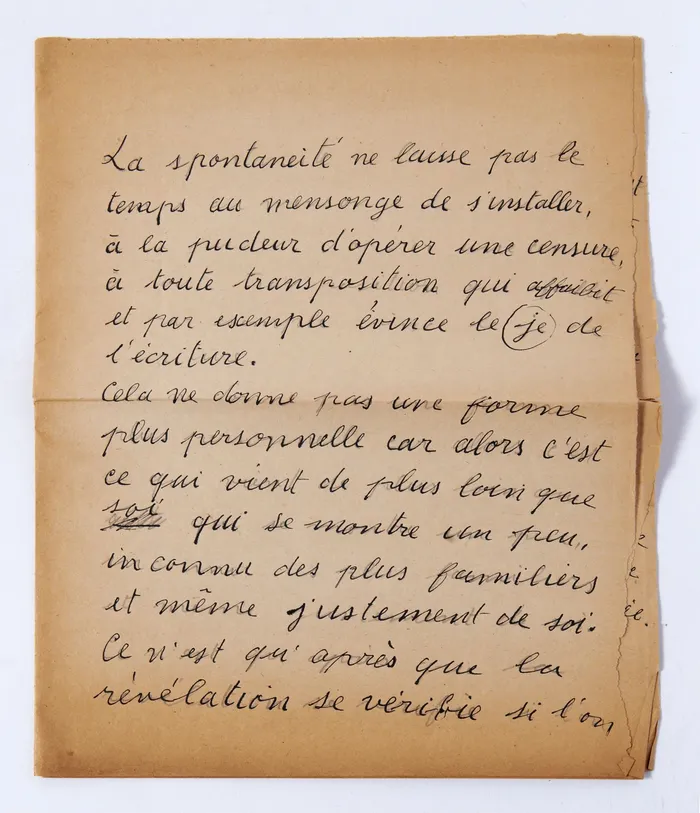 La spontaneité ne laisse pas le
temps au mensonge de s'installer,
à la pudeur d'opérer une censure,
à toute transposition qui affaiblit
et par exemple évince le (je) de
l'écriture.
Cela ne donne pas une forme
plus personnelle car alors c'est
ce qui vient de plus loin que
soi qui se montre un peu,
inconnu des plus familiers
et même justement de soi.
Ce n'est qu'après que la
révélation se vérifie si l'on